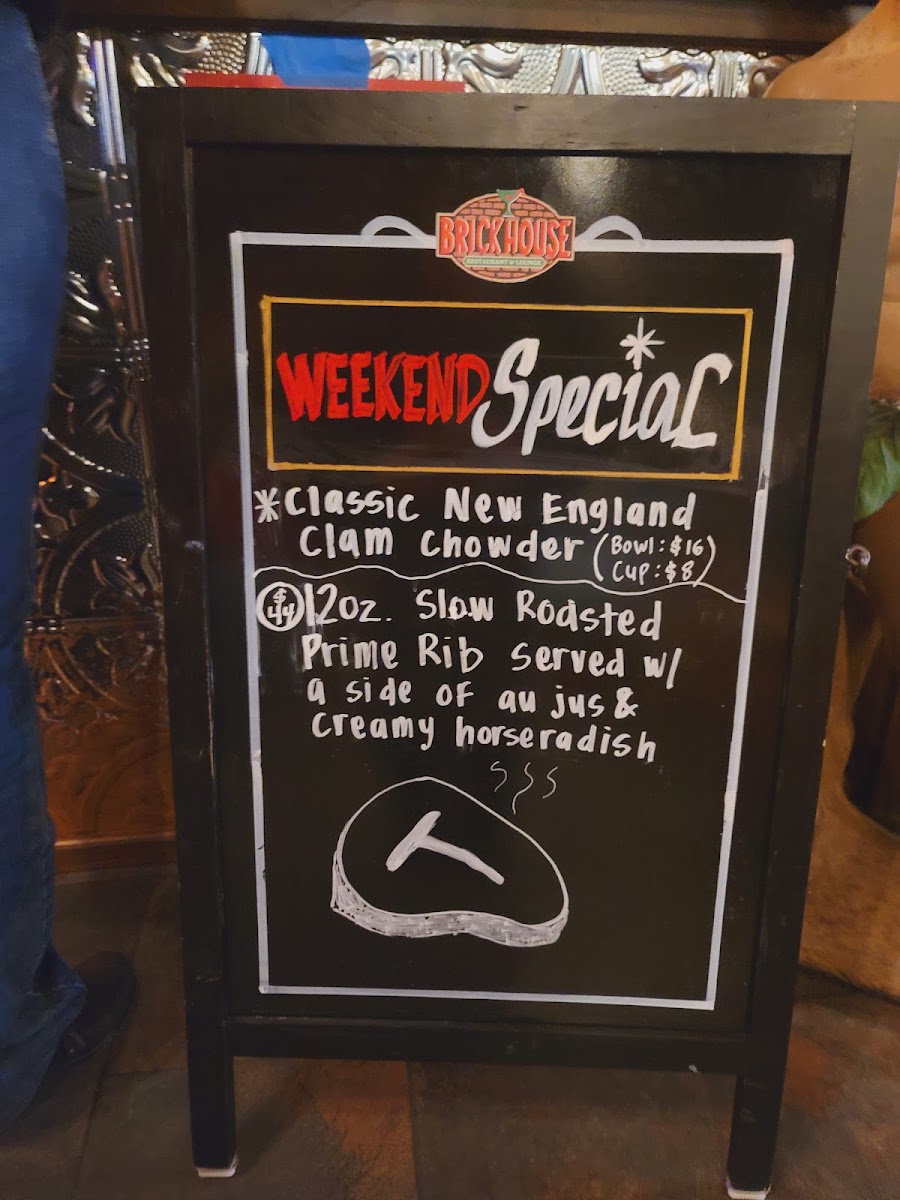 BRICKHOUSE
RESTAURANT & LOUNGE
WEEKEND Special
*Classic New England
Clam Chowder (Bowl: $16
Cup: $8)
$44 12oz. Slow Roasted
Prime Rib served w/
a side of au jus &
creamy horseradish